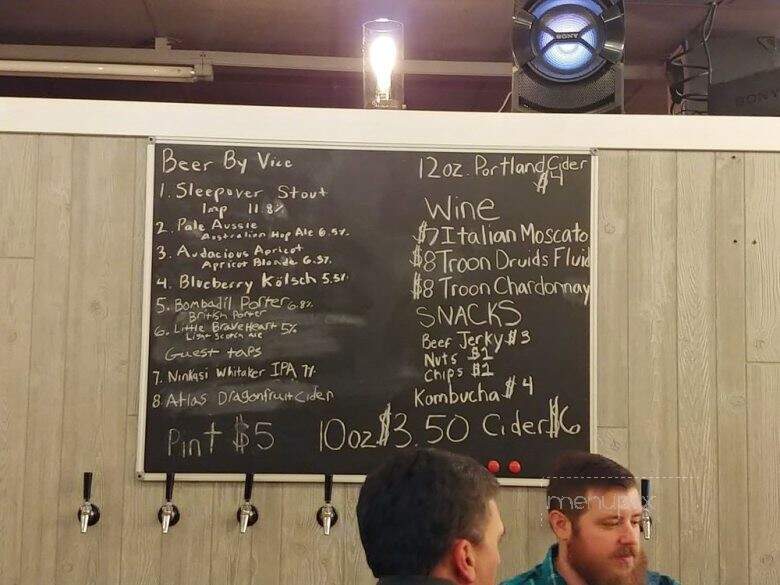 SONY
SONY
Beer By Vice
1. Sleepover Stout
Imp 11.8%
2. Pale Aussie
Australian Hop Ale 6.5%
3. Audacious Apricot
Apricot Blonde 6.3%
4. Blueberry Kölsch 5.5%
5. Bombadil Porter 6.8%
British Porter
6. Little BraveHeart 5%
Light Scotch Ale
Guest taps
7. Ninkasi Whitaker IPA 7%
8 Atlas Dragonfruit Cider
Pint $5
12oz. Portland Cider
$4
Wine
$7 Italian Moscato
$8 Troon Druids Fluid
$8 Troon Chardonnay
SNACKS
Beef Jerky $3
Nuts $1
Chips $1
Kombucha $4
10oz $3.50 Cider $6
menupix